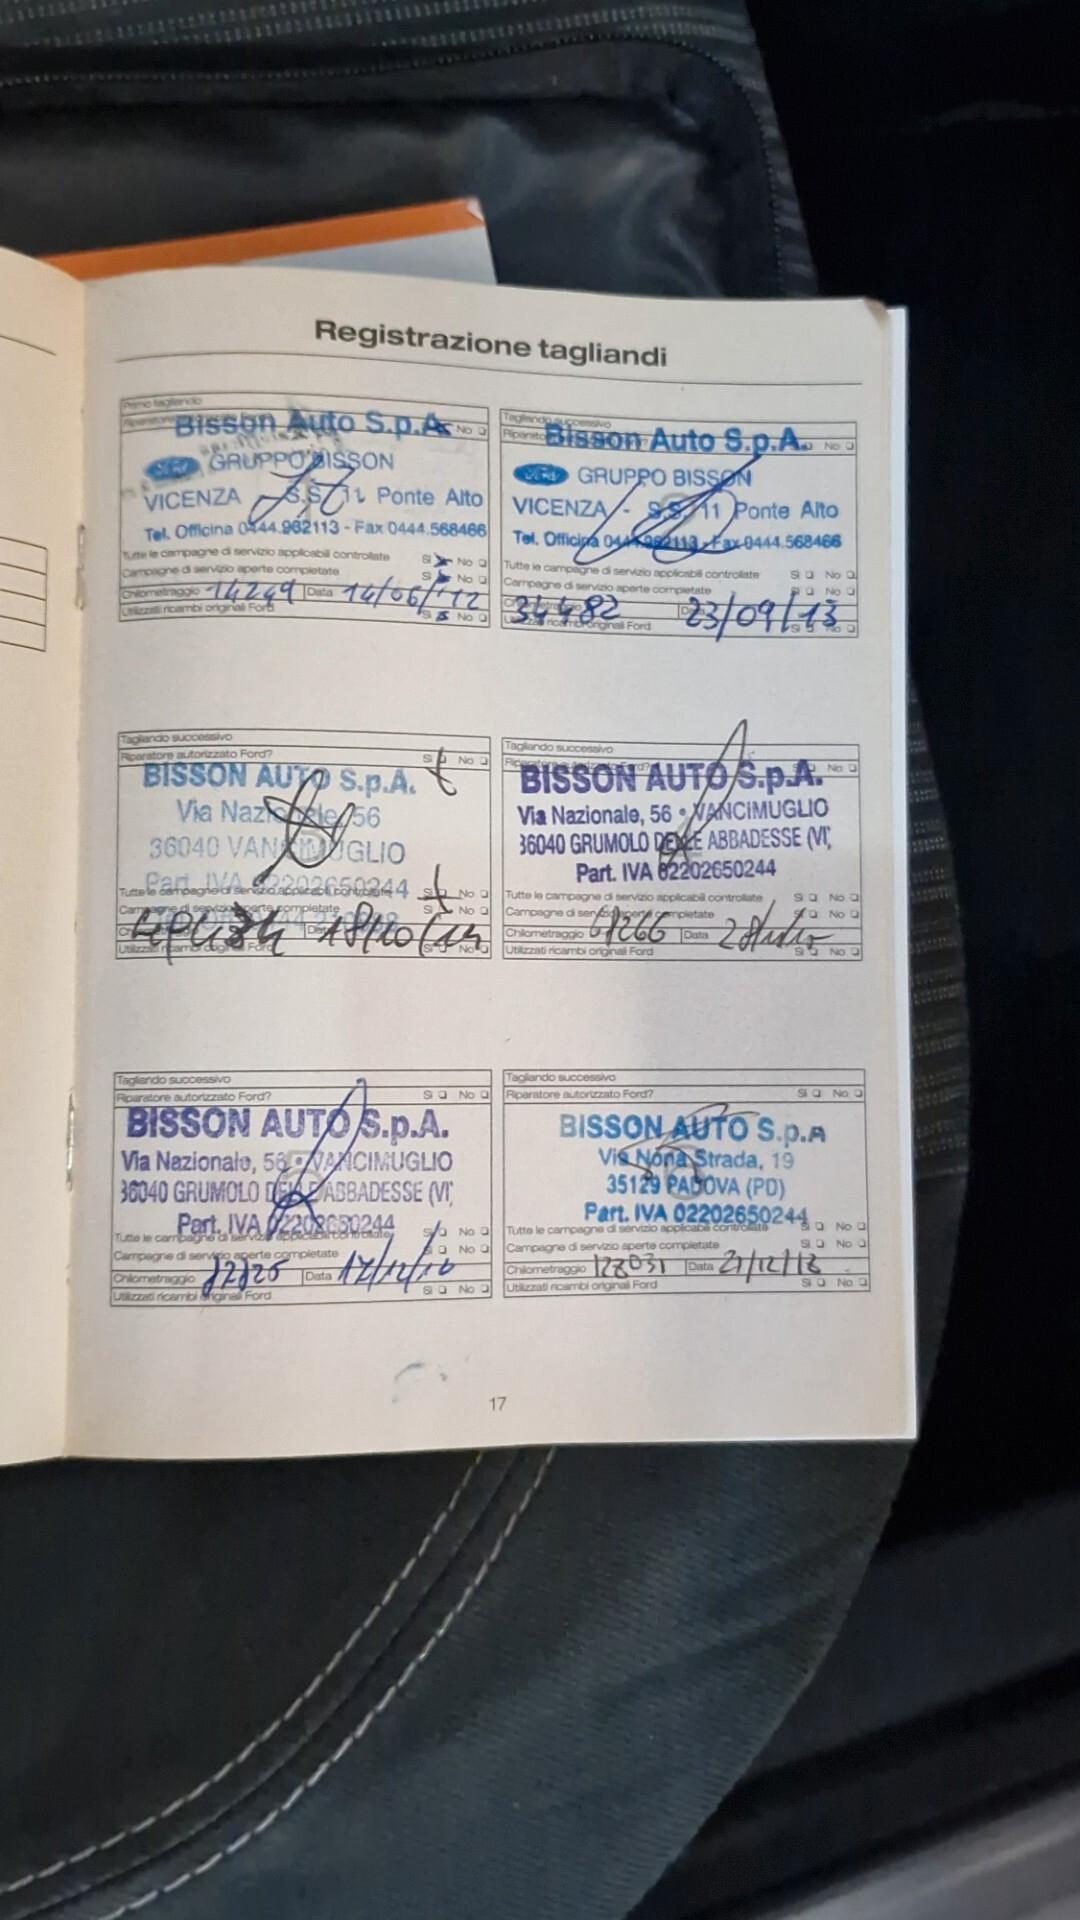 Registrazione tagliandi
Primo tagliando
Bisson Auto S.p.A.
No
Ford GRUPPO BISSON
VICENZA - S.S. 11 Ponte Alto
Tel. Officina 0444.962113 - Fax 0444.568466
Tutte le campagne di servizio applicabili controllate Sì No
Campagne di servizio aperte completate Sì No
Chilometraggio 14249 Data 14/06/12
Utilizzati ricambi originali Ford Sì No
Tagliando successivo
Bisson Auto S.p.A.
No
Ford GRUPPO BISSON
VICENZA - S.S. 11 Ponte Alto
Tel. Officina 0444.962113 - Fax 0444.568466
Tutte le campagne di servizio applicabili controllate Sì No
Campagne di servizio aperte completate Sì No
34482 23/09/13
Utilizzati ricambi originali Ford Sì No
Tagliando successivo
Riparatore autorizzato Ford? Sì No
BISSON AUTO S.p.A.
Via Nazionale, 56
36040 VANCIMUGLIO
Part. IVA 02202650244
Tutte le campagne di servizio applicabili controllate Sì No
Campagne di servizio aperte completate Sì No
18/10/14
Utilizzati ricambi originali Ford Sì No
Tagliando successivo
Riparatore autorizzato Ford? Sì No
BISSON AUTO S.p.A.
Via Nazionale, 56 • VANCIMUGLIO
36040 GRUMOLO DELLE ABBADESSE (VI)
Part. IVA 02202650244
Tutte le campagne di servizio applicabili controllate Sì No
Campagne di servizio aperte completate Sì No
Chilometraggio 61266 Data
Utilizzati ricambi originali Ford Sì No
Tagliando successivo
Riparatore autorizzato Ford? Sì No
BISSON AUTO S.p.A.
Via Nazionale, 56 • VANCIMUGLIO
36040 GRUMOLO DELLE ABBADESSE (VI)
Part. IVA 02202650244
Tutte le campagne di servizio applicabili controllate Sì No
Campagne di servizio aperte completate Sì No
Chilometraggio Data 17/12/16
Utilizzati ricambi originali Ford Sì No
Tagliando successivo
Riparatore autorizzato Ford? Sì No
BISSON AUTO S.p.A
Via Nona Strada, 19
35129 PADOVA (PD)
Part. IVA 02202650244
Tutte le campagne di servizio applicabili controllate Sì No
Campagne di servizio aperte completate Sì No
Chilometraggio 128031 Data 21/12/18
Utilizzati ricambi originali Ford Sì No
17